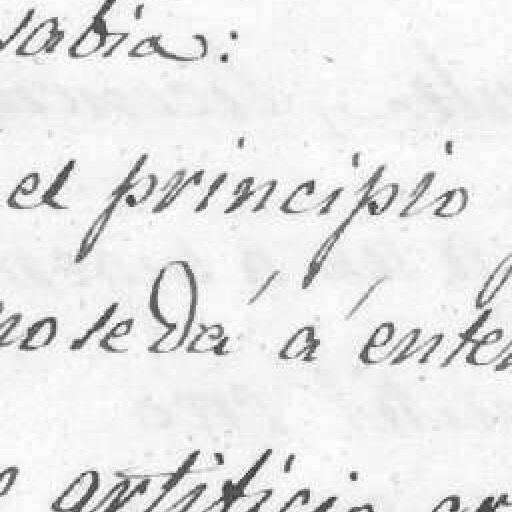 sabia:
el principio
no se dá á enten
artificio